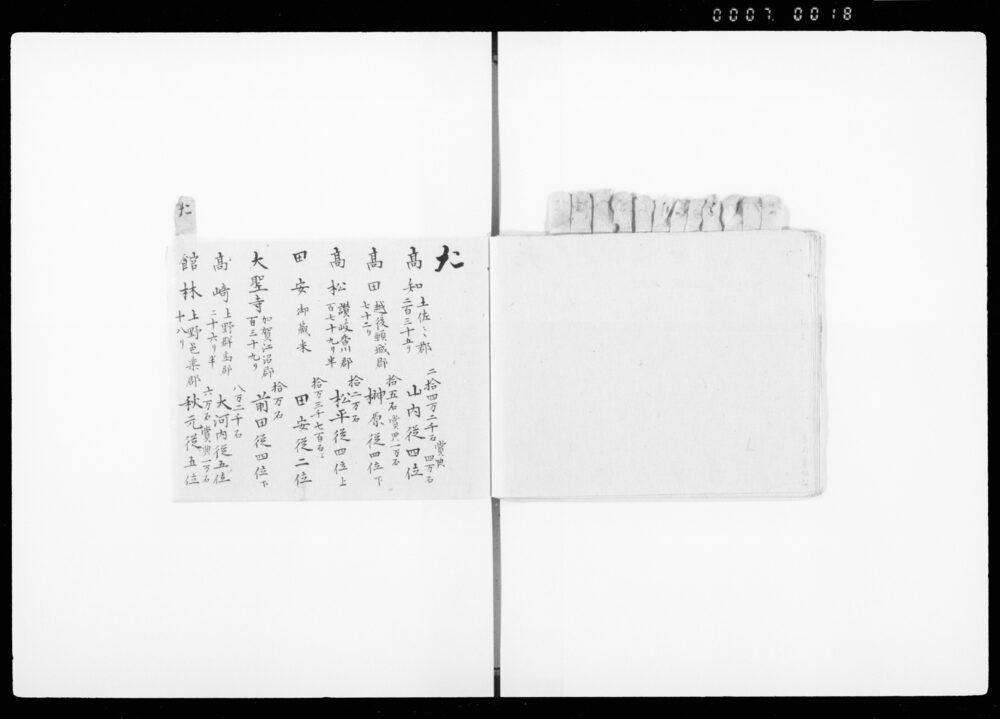 0007 0018
た
た
高知 土佐〻郡 二百三十五り 二拾四万二千石 賞典四万石 山内従四位
高田 越後頸城郡 七十二り 拾五石 賞典一万石 榊原従四位下
高松 讃岐香川郡 百七十九り半 拾二万石 松平従四位上
田安 御蔵米 拾万三千七百石 田安従二位
大聖寺 加賀江沼郡 百三十九り 拾万石 前田従四位下
高崎 上野群馬郡 二十六り半 八万二千石 大河内従五位
館林 上野邑楽郡 十八り 六万石 賞典一万石 秋元従五位